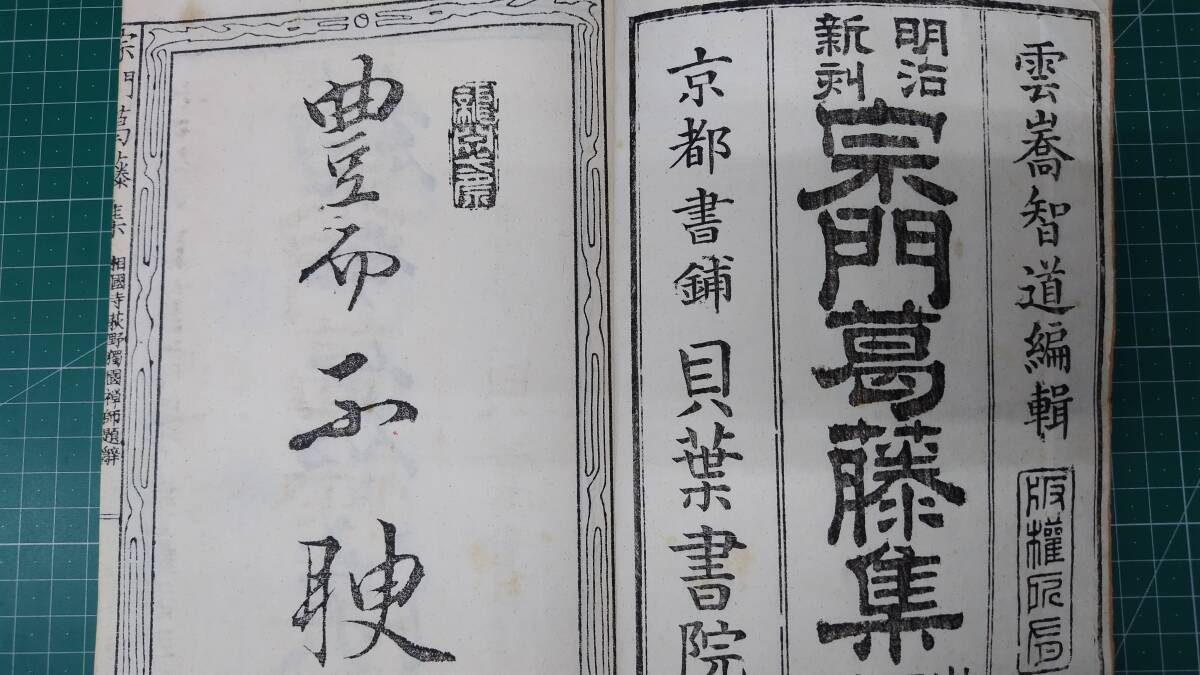 雲嶠智道編輯
版權所有
明治
新刻
宗門葛藤集
京都書鋪 貝葉書院
豊而不腴
宗門葛藤集 相國寺荻野獨園禅師題辞